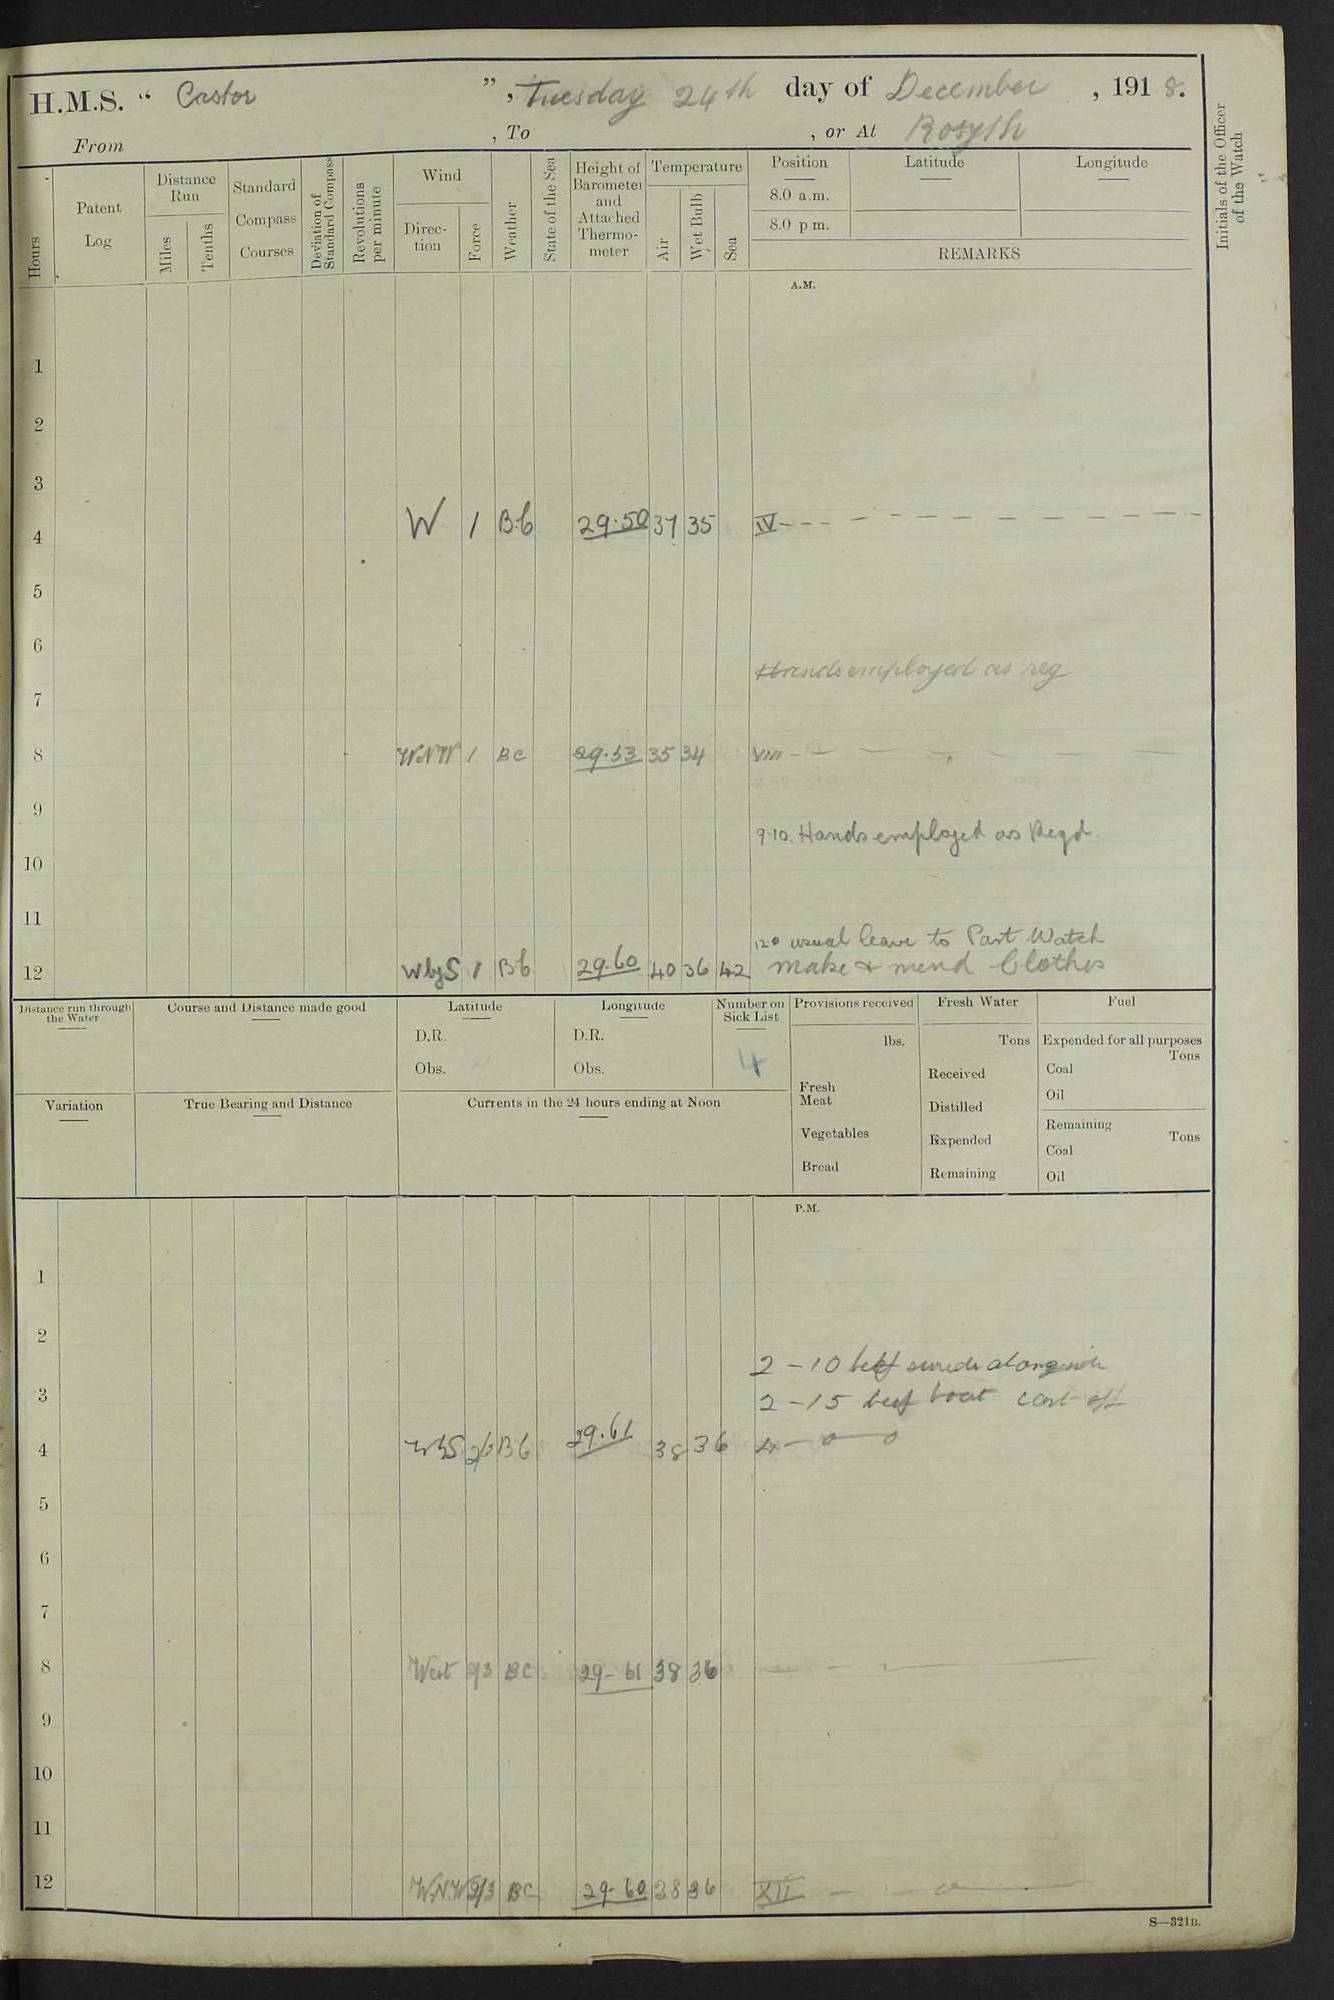 H.M.S. “ Castor ”, Tuesday 24th day of December, 1918.
From , To , or At Rosyth
Initials of the Officer of the Watch
Hours
Patent Log
Distance Run
Miles
Tenths
Standard Compass Courses
Deviation of Standard Compass
Revolutions per minute
Wind
Direction
Force
Weather
State of the Sea
Height of Barometer and Attached Thermometer
Temperature
Air
Wet Bulb
Sea
Position
8.0 a.m.
8.0 p m.
Latitude
Longitude
REMARKS
A.M.
1
2
3
4 W 1 B.C 29.50 37 35 IV - - -
5
6
Hands employed as reg
7
8 WNW 1 BC 29.53 35 34 VIII - -
9
9.10. Hands employed as Reqd.
10
11
12.0 usual leave to Part Watch
12 WbyS 1 BC 29.60 40 36 42 make & mend Clothes
Distance run through the Water
Course and Distance made good
Latitude
D.R.
Obs.
Longitude
D.R.
Obs.
Number on Sick List
4
Provisions received
lbs.
Fresh Meat
Vegetables
Bread
Fresh Water
Tons
Received
Distilled
Expended
Remaining
Fuel
Expended for all purposes
Tons
Coal
Oil
Remaining
Tons
Coal
Oil
Variation
True Bearing and Distance
Currents in the 24 hours ending at Noon
P.M.
1
2
2 - 10 beef alongside
3 2 - 15 beef boat cast off
4 WbS BC 29.61 38 36 4 -
5
6
7
8 West 2/3 BC 29-61 38 36
9
10
11
12 W.N.W 2/3 BC 29-60 38 36 XII
S—321B.